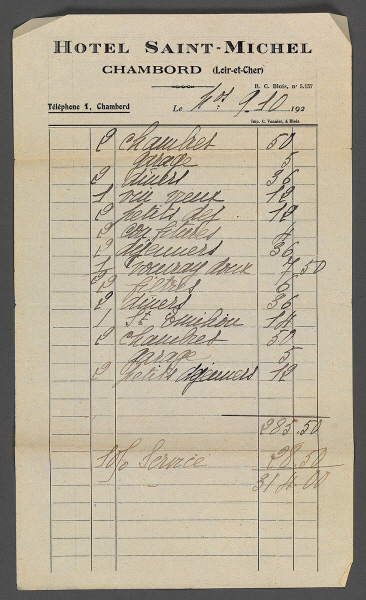 HOTEL SAINT-MICHEL
CHAMBORD (Loir-et-Cher)
R. C. Blois, nº 5.137
Téléphone 1, Chambord
Le Nos 9.10 192
Imp. C. Vannier, à Blois
2 chambres 50
garage 5
2 diners 36
1 vin vieux 12
2 petits dej 12
2 confitures 4
2 dejeuners 36
1/2 vouvray doux 7 50
2 filtres 6
2 diners 36
1 St Emilion 14
2 chambres 50
garage 5
2 petits dejeuners 12
285.50
10% Service 28.50
314.00